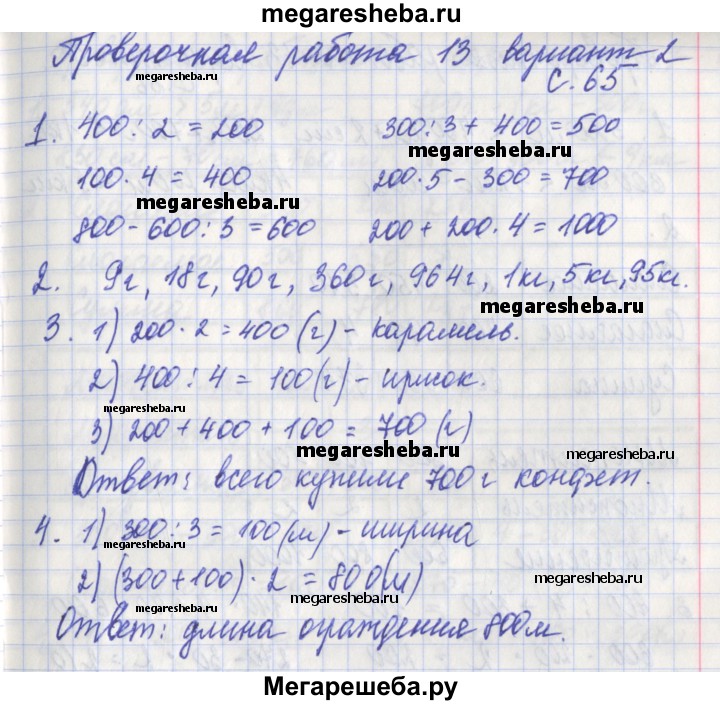 megaresheba.ru
Проверочная работа 13 вариант 2
megaresheba.ru
с. 65
1. 400 : 2 = 200 300 : 3 + 400 = 500
megaresheba.ru
100 · 4 = 400 200 · 5 - 300 = 700
megaresheba.ru
800 - 600 : 3 = 600 200 + 200 · 4 = 1000
2. 9г, 18г, 90г, 360г, 964г, 1кг, 5кг, 95кг.
megaresheba.ru
3. 1) 200 · 2 = 400 (г) - карамель.
megaresheba.ru
2) 400 : 4 = 100 (г) - ирисок.
megaresheba.ru
3) 200 + 400 + 100 = 700 (г)
megaresheba.ru megaresheba.ru
Ответ: всего купили 700 г конфет.
4. 1) 300 : 3 = 100 (м) - ширина
megaresheba.ru
2) (300 + 100) · 2 = 800 (м)
megaresheba.ru
megaresheba.ru
megaresheba.ru
Ответ: длина ограждения 800 м.
Мегарешеба.ру